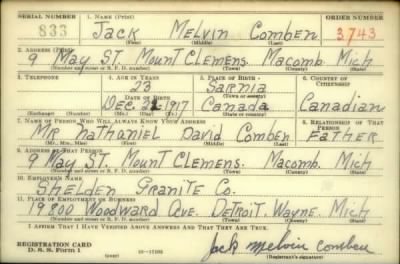 SERIAL NUMBER 1. NAME (Print) ORDER NUMBER
833 Jack Melvin Comben 3743
(First) (Middle) (Last)
2. ADDRESS (Print)
9 May ST. Mount Clemens, Macomb, Mich
(Number and street or R. F. D. number) (Town) (County) (State)
3. TELEPHONE 4. AGE IN YEARS 5. PLACE OF BIRTH 6. COUNTRY OF CITIZENSHIP
23 Sarnia
DATE OF BIRTH (Town or county)
Dec. 1917 Canada Canadian
(Exchange) (Number) (Mo.) (Day) (Yr.) (State or country)
7. NAME OF PERSON WHO WILL ALWAYS KNOW YOUR ADDRESS 8. RELATIONSHIP OF THAT PERSON
Mr Nathaniel David Comben Father
(Mr., Mrs., Miss) (First) (Middle) (Last)
9. ADDRESS OF THAT PERSON
9 May ST. Mount Clemens, Macomb, Mich
(Number and street or R. F. D. number) (Town) (County) (State)
10. EMPLOYER'S NAME
Shelden Granite Co.
11. PLACE OF EMPLOYMENT OR BUSINESS
19800 Woodward Ave. Detroit, Wayne, Mich
(Number and street or R. F. D. number) (Town) (County) (State)
I AFFIRM THAT I HAVE VERIFIED ABOVE ANSWERS AND THAT THEY ARE TRUE.
REGISTRATION CARD
D. S. S. Form 1 (over) Jack Melvin Comben